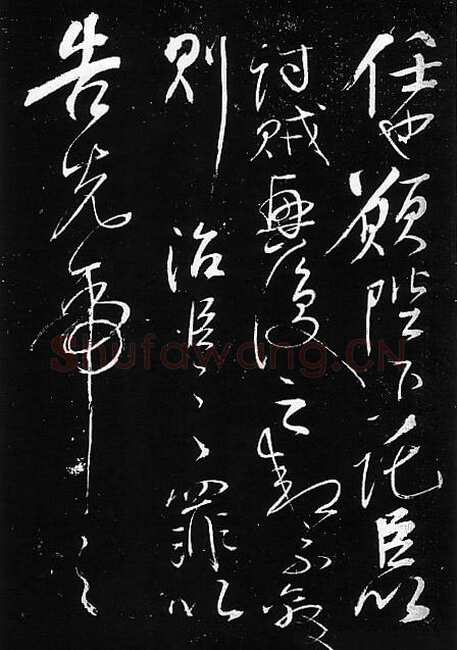 任也願陛下託臣以
討賊興復之効不效
則治臣之罪以
告先帝之
Shufawang.CN